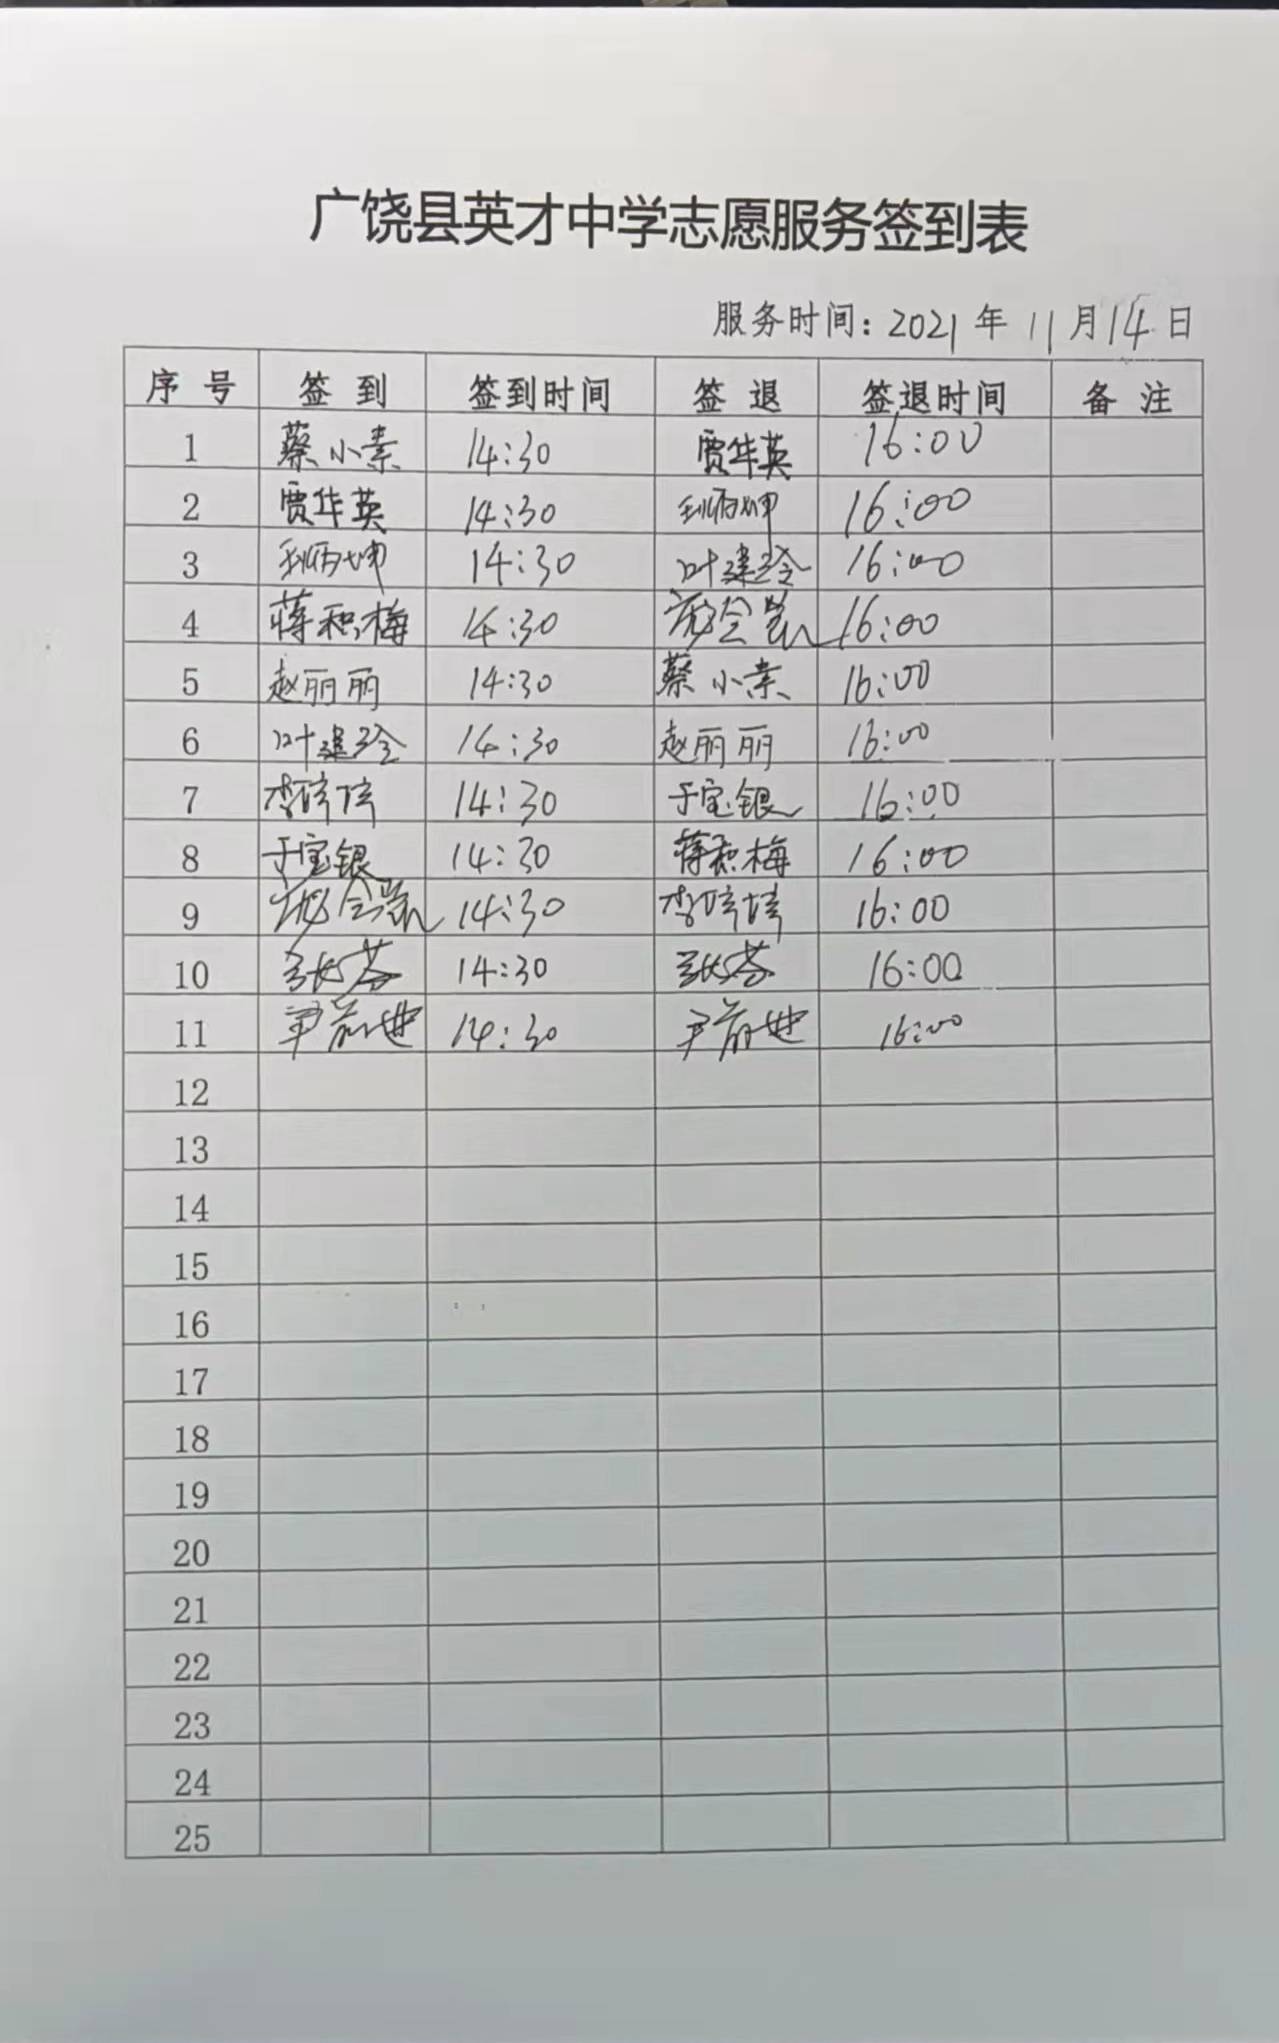 广饶县英才中学志愿服务签到表
服务时间：2021年11月14日
序号 签到 签到时间 签退 签退时间 备注
1 蔡小素 14:30 贾华英 16:00
2 贾华英 14:30 16:00
3 14:30 叶建玲 16:00
4 蒋积梅 14:30 16:00
5 赵丽丽 14:30 蔡小素 16:00
6 叶建玲 14:30 赵丽丽 16:00
7 李婷婷 14:30 于宝银 16:00
8 于宝银 14:30 蒋积梅 16:00
9 14:30 李婷婷 16:00
10 张芬 14:30 张芬 16:00
11 14:30 16:00
12
13
14
15
16
17
18
19
20
21
22
23
24
25